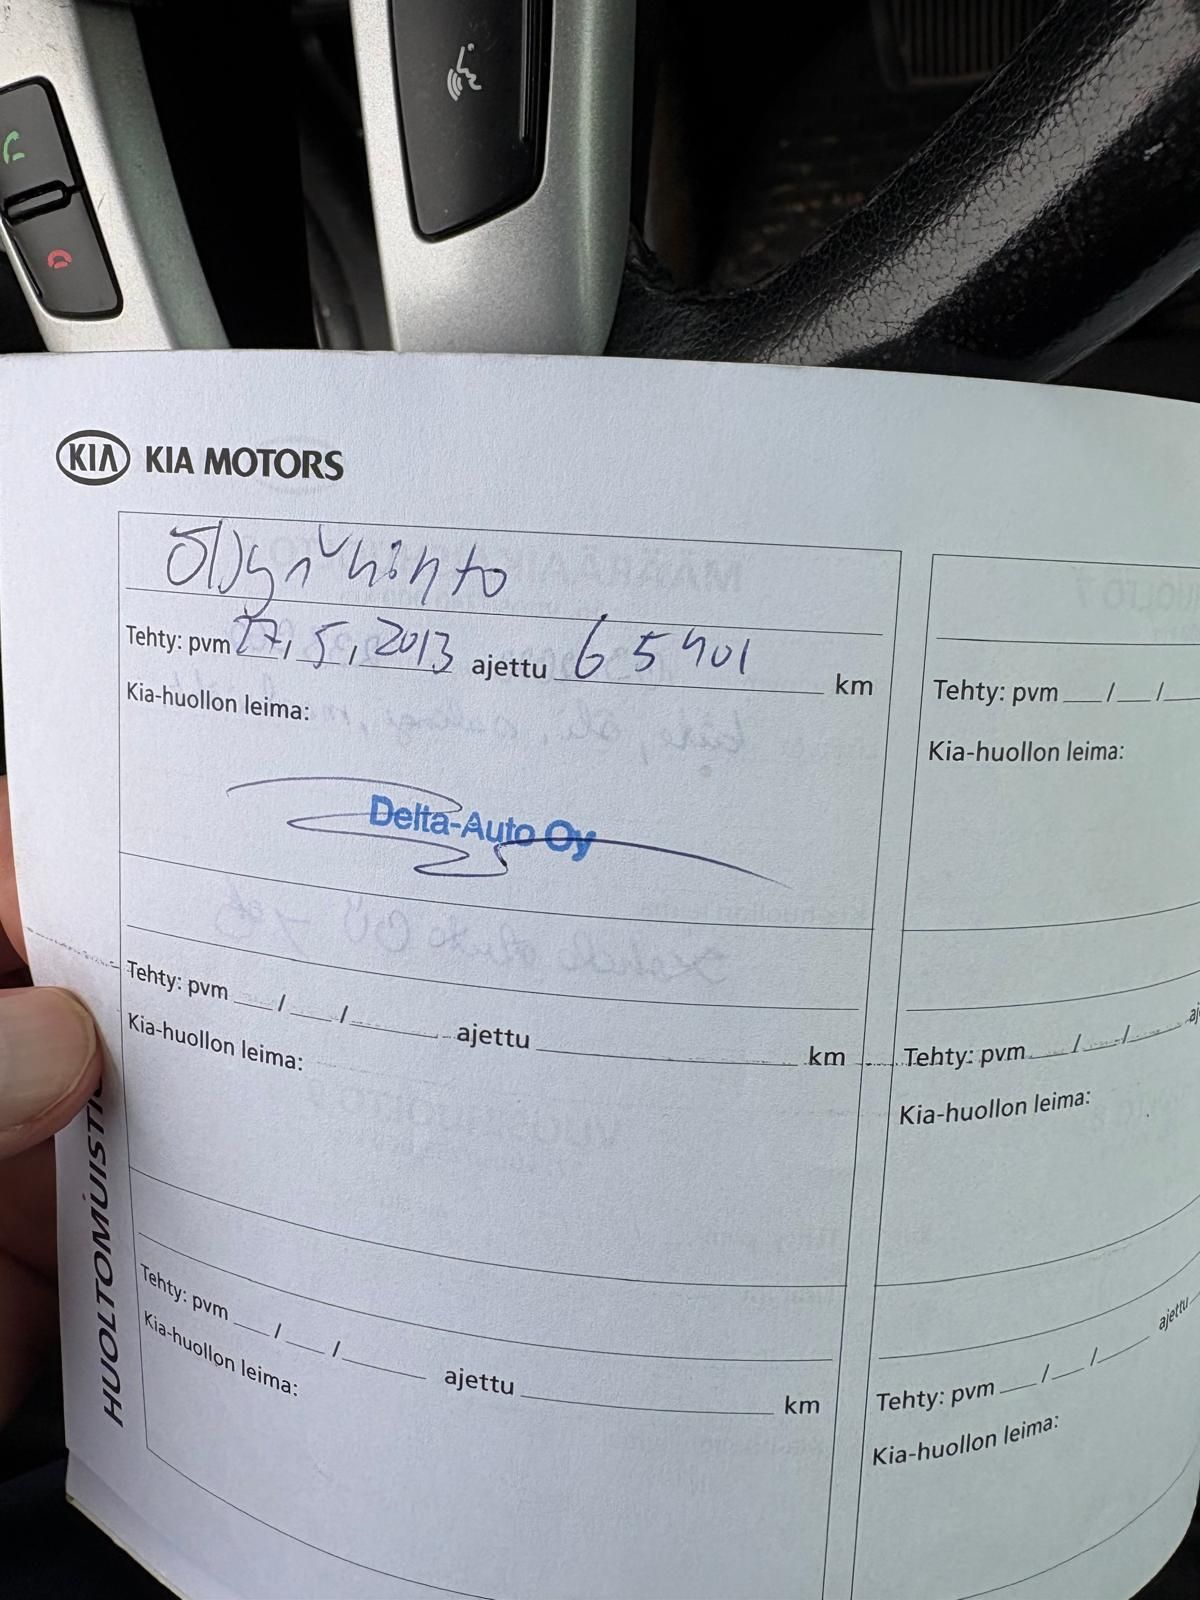 KIA KIA MOTORS
Öljyn vaihto
Tehty: pvm 27, 5, 2013 ajettu 65401 km
Kia-huollon leima:
Delta-Auto Oy
Tehty: pvm __/__/____ ajettu ____ km
Kia-huollon leima:
Tehty: pvm __/__/____ ajettu ____ km
Kia-huollon leima:
HUOLTOMUISTI
Tehty: pvm __/__/
Kia-huollon leima:
Tehty: pvm __/__/____
Kia-huollon leima:
Tehty: pvm __/__/____ ajettu
Kia-huollon leima: